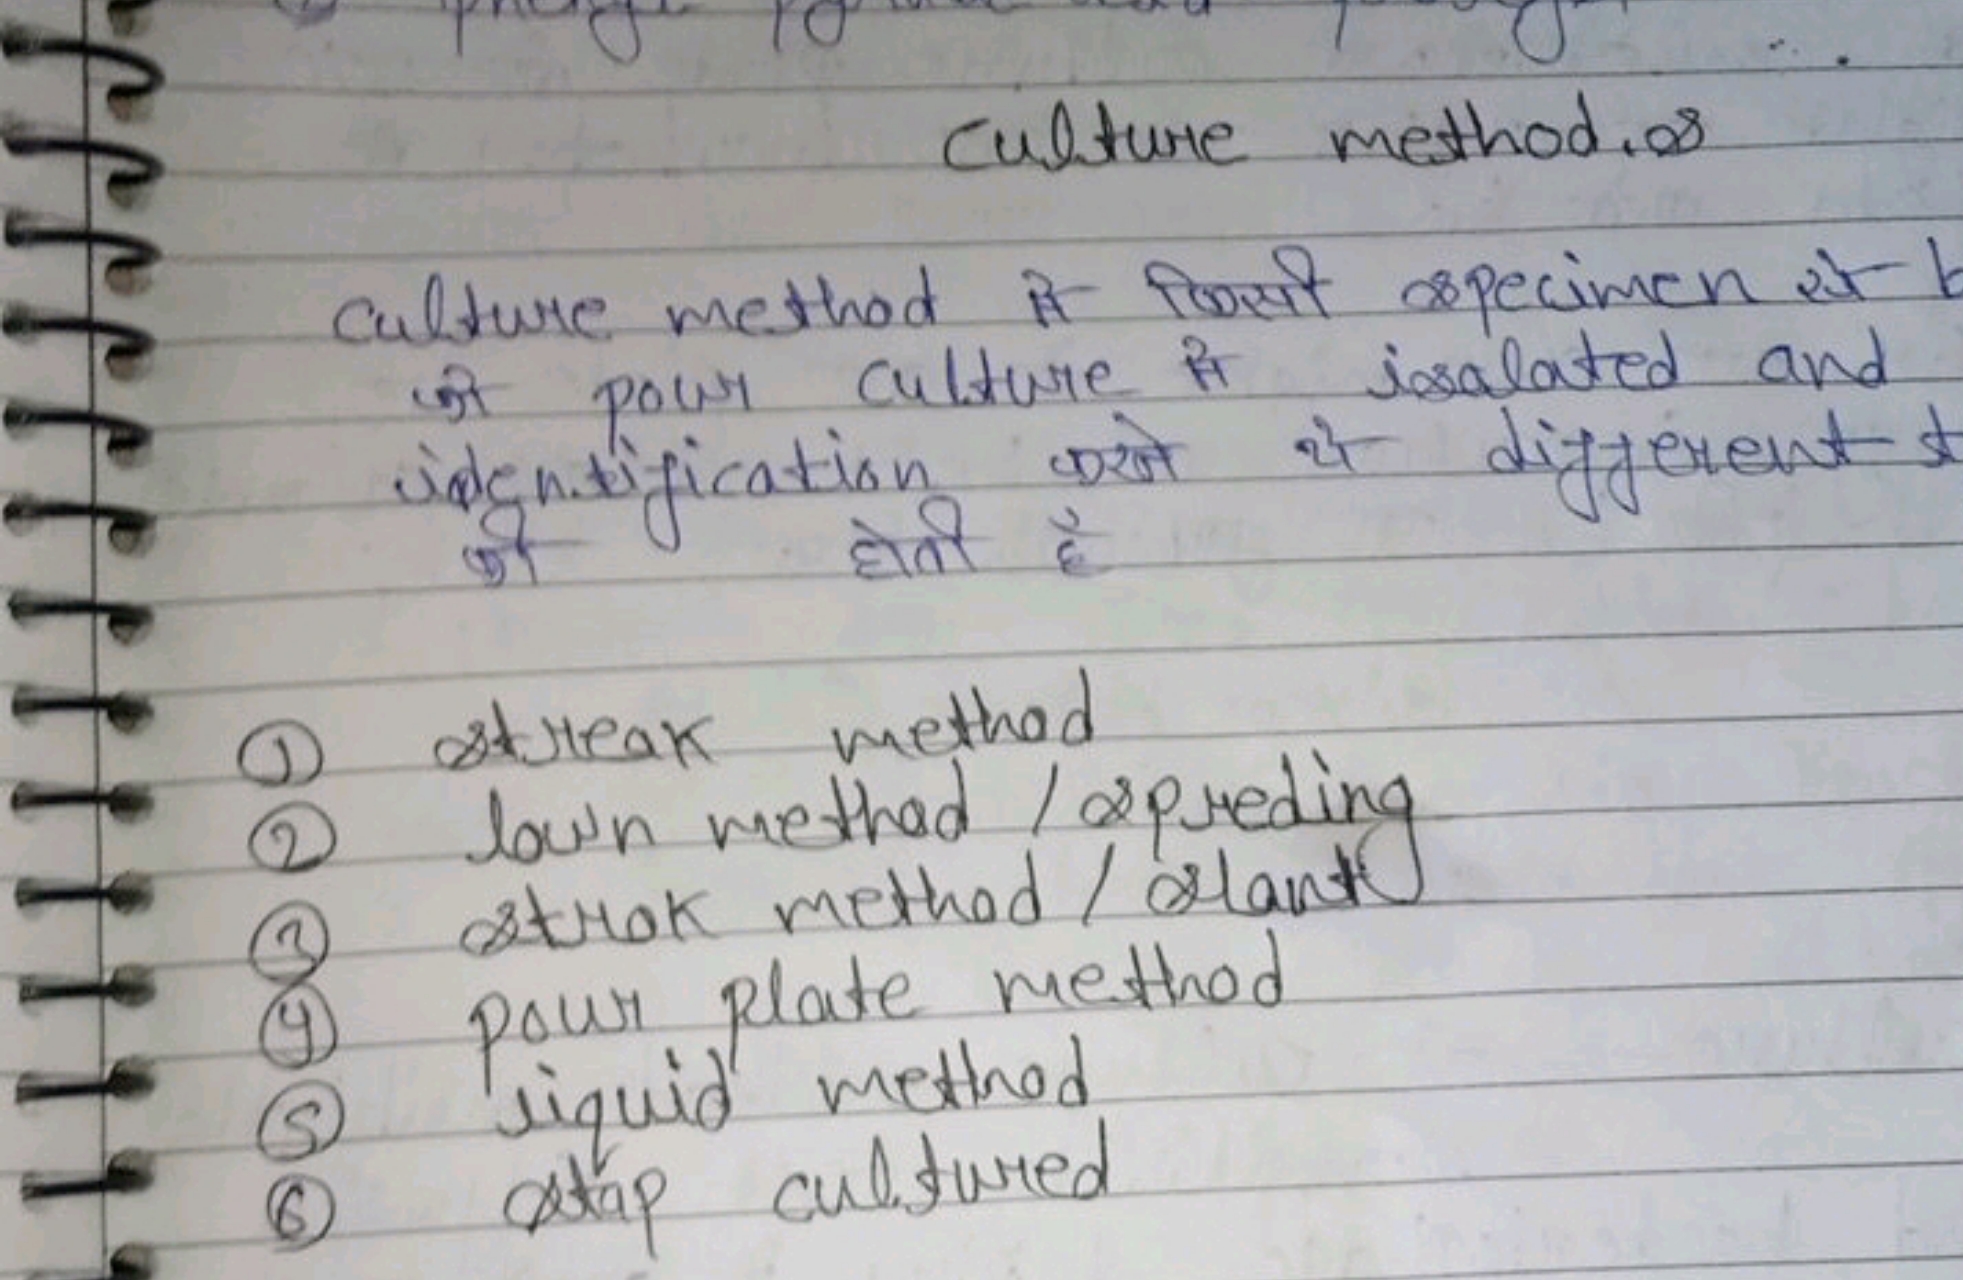 culture method.s
culture method में किसी specimen से
को pour culture में isalated and
identification करने से different
की होती है
① streak method
② lown method / spreding
③ strok method / slant
④ pour plate method
⑤ liquid method
⑥ stap cultured